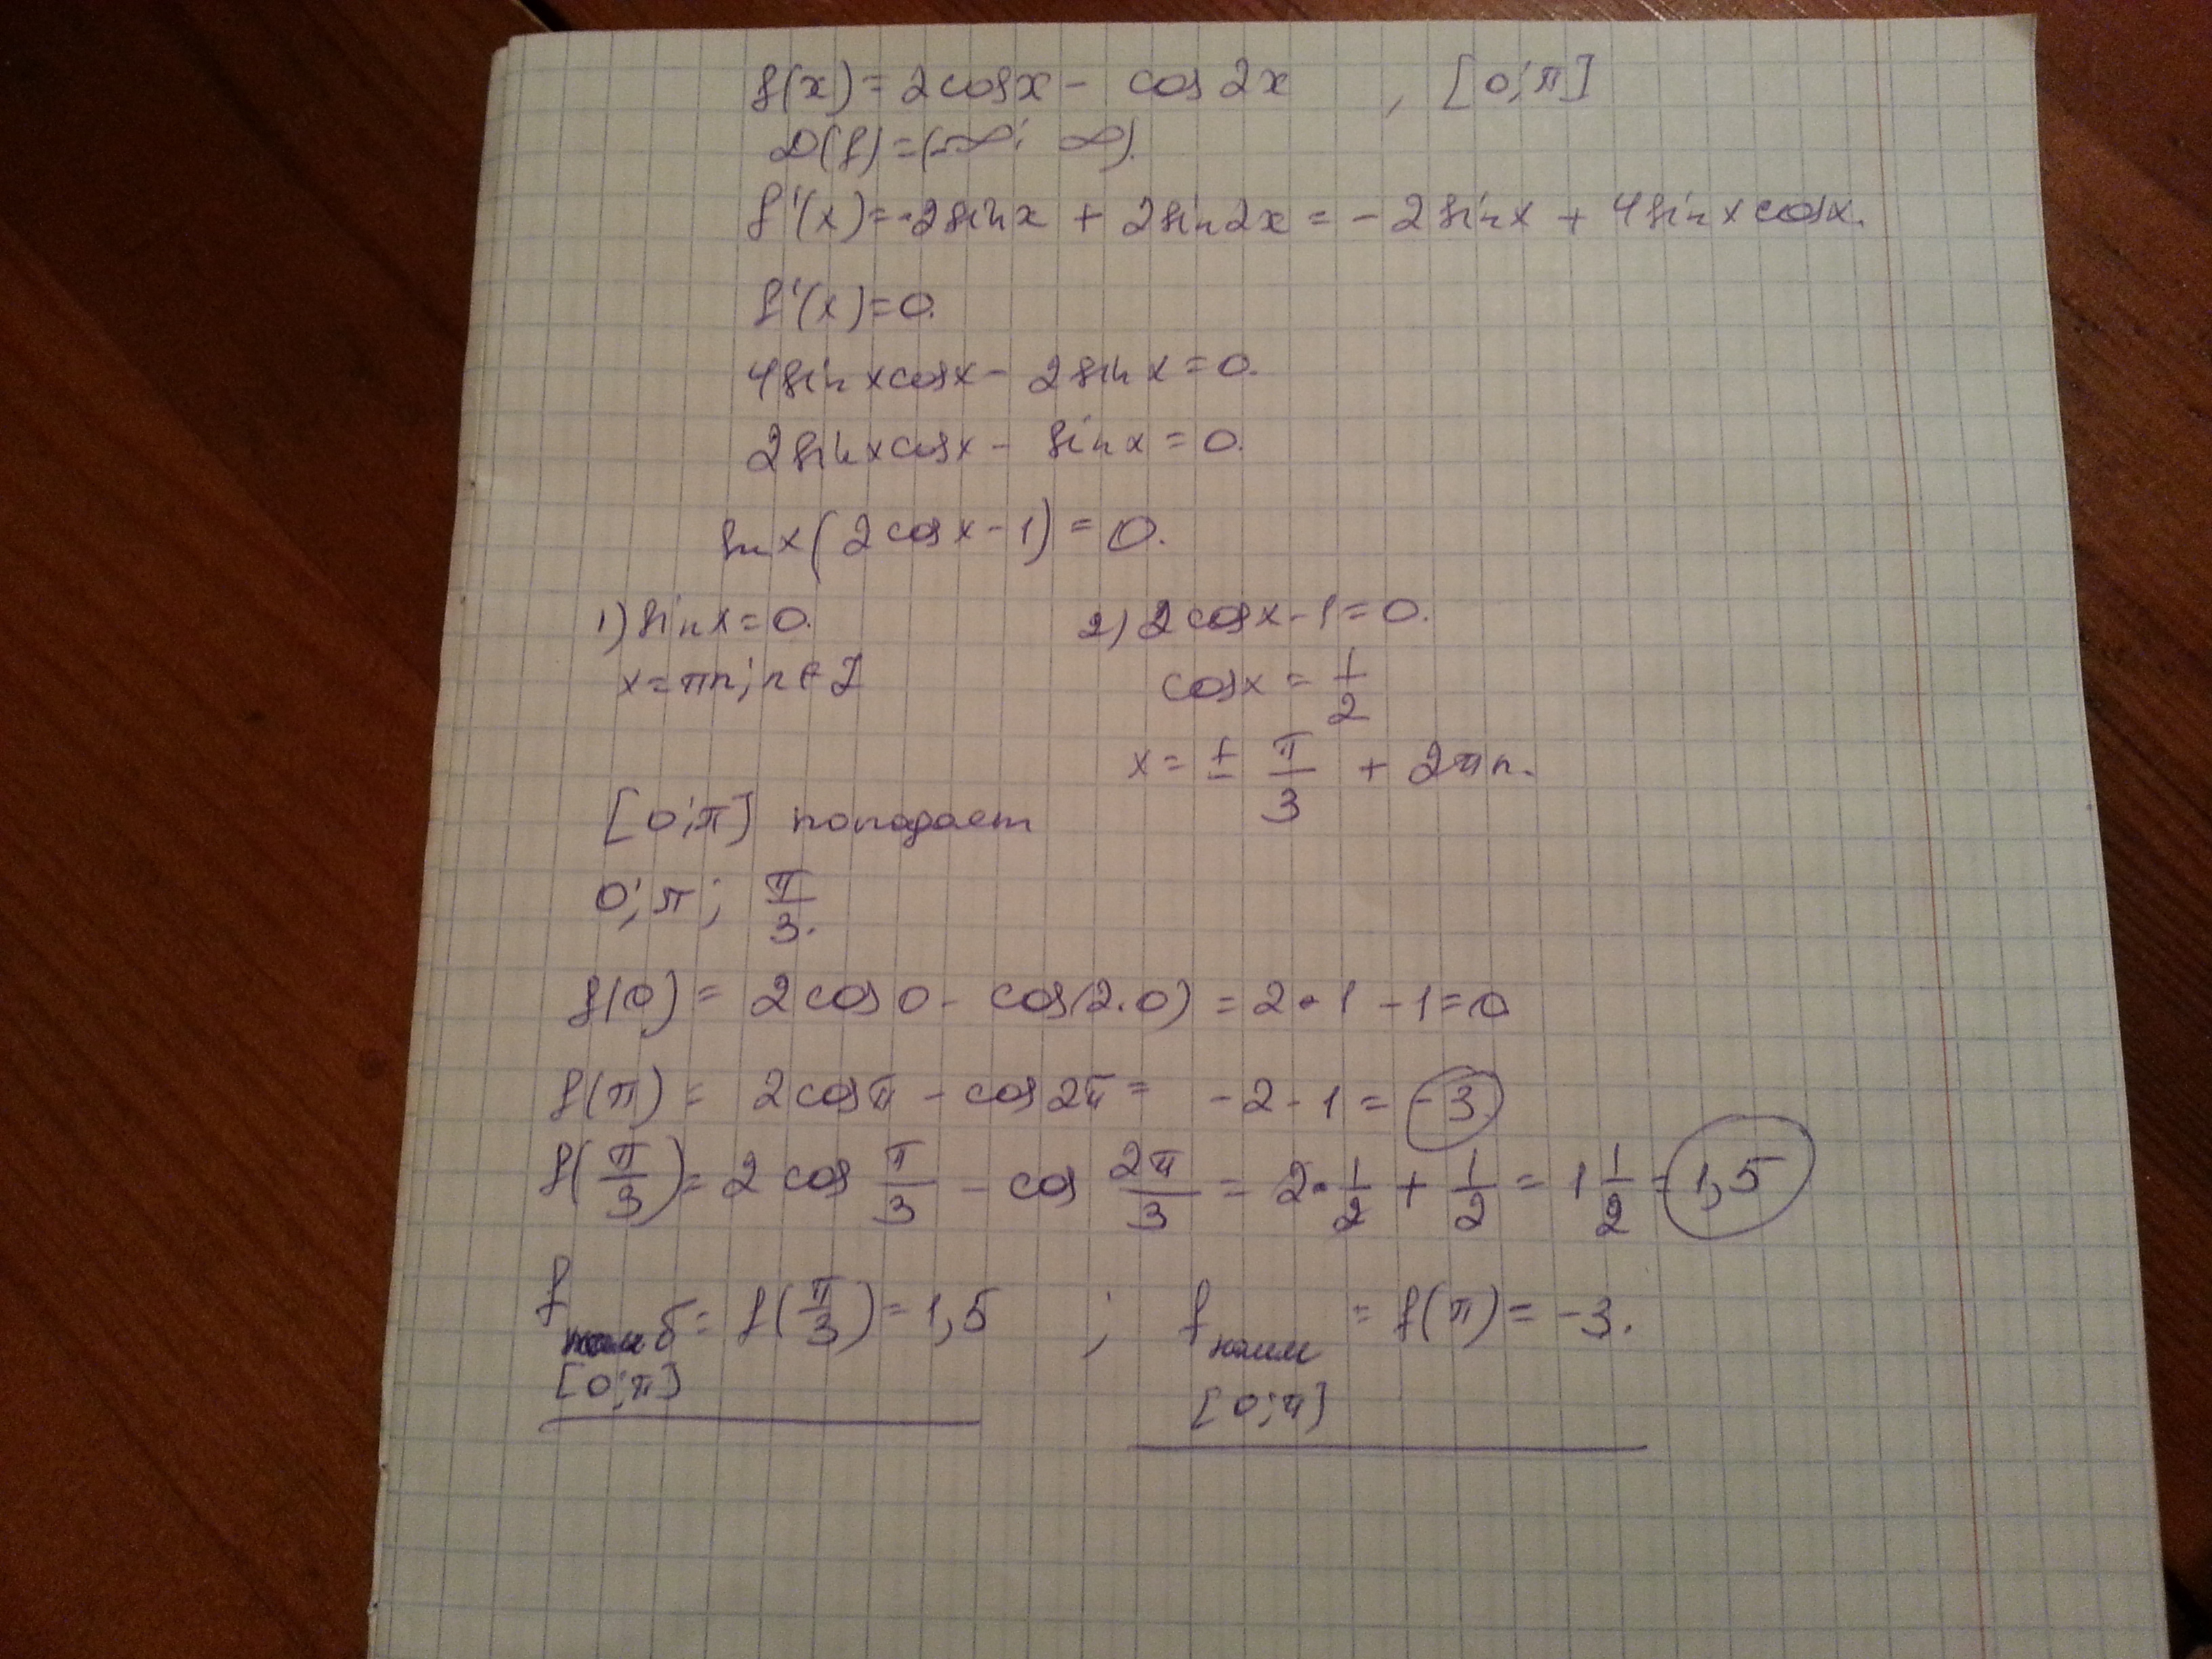 f(x) = 2cosx - cos2x , [0;π]
D(f) = (-∞; ∞).
f'(x) = -2sinx + 2sin2x = -2sinx + 4sinxcosx.
f'(x) = 0.
4sinxcosx - 2sinx = 0.
2sinxcosx - sinx = 0.
sinx(2cosx - 1) = 0.
1) sinx = 0. 2) 2cosx - 1 = 0.
x = πn; n∈Z cosx = 1/2
x = ± π/3 + 2πn.
[0;π] попадает
0; π; π/3.
f(0) = 2cos0 - cos(2·0) = 2·1 - 1 = 0
f(π) = 2cosπ - cos2π = -2 - 1 = -3
f(π/3) = 2cos π/3 - cos 2π/3 = 2·1/2 + 1/2 = 1 1/2 = 1,5
f наиб = f(π/3) = 1,5 ; f наим = f(π) = -3.
[0;π] [0;π]